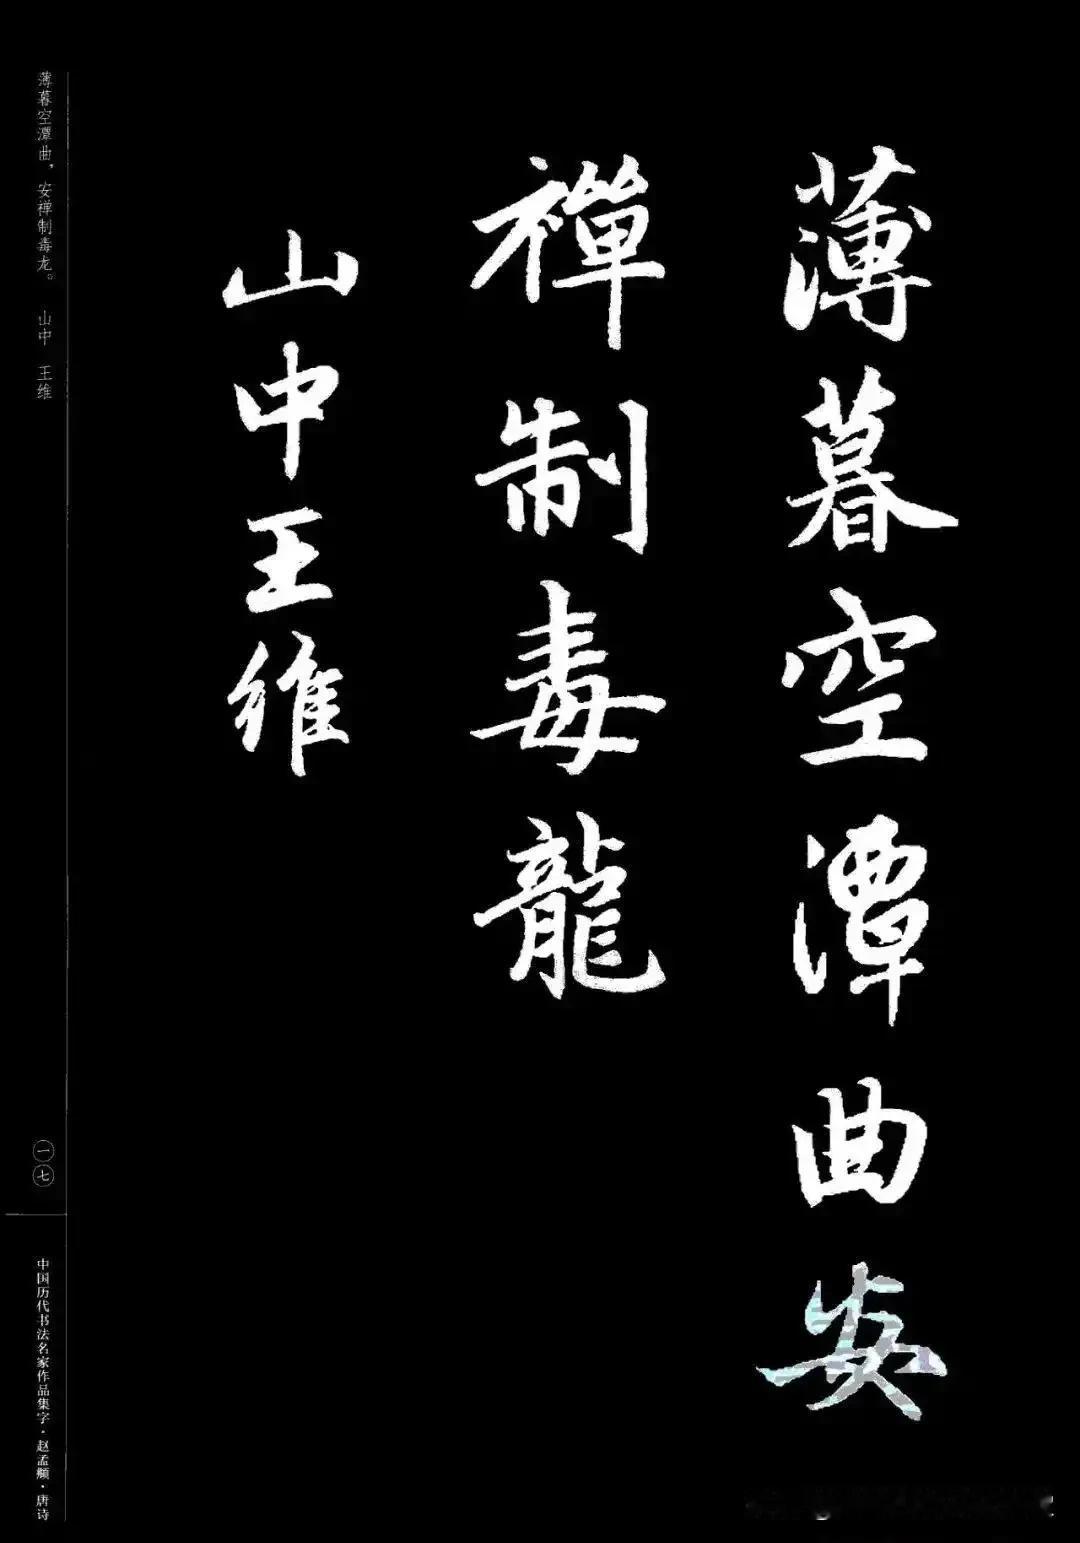 薄暮空潭曲安
禪制毒龍
山中王維
薄暮空潭曲，安禅制毒龙。 山中 王维
一七
中国历代书法名家作品集字·赵孟頫·唐诗